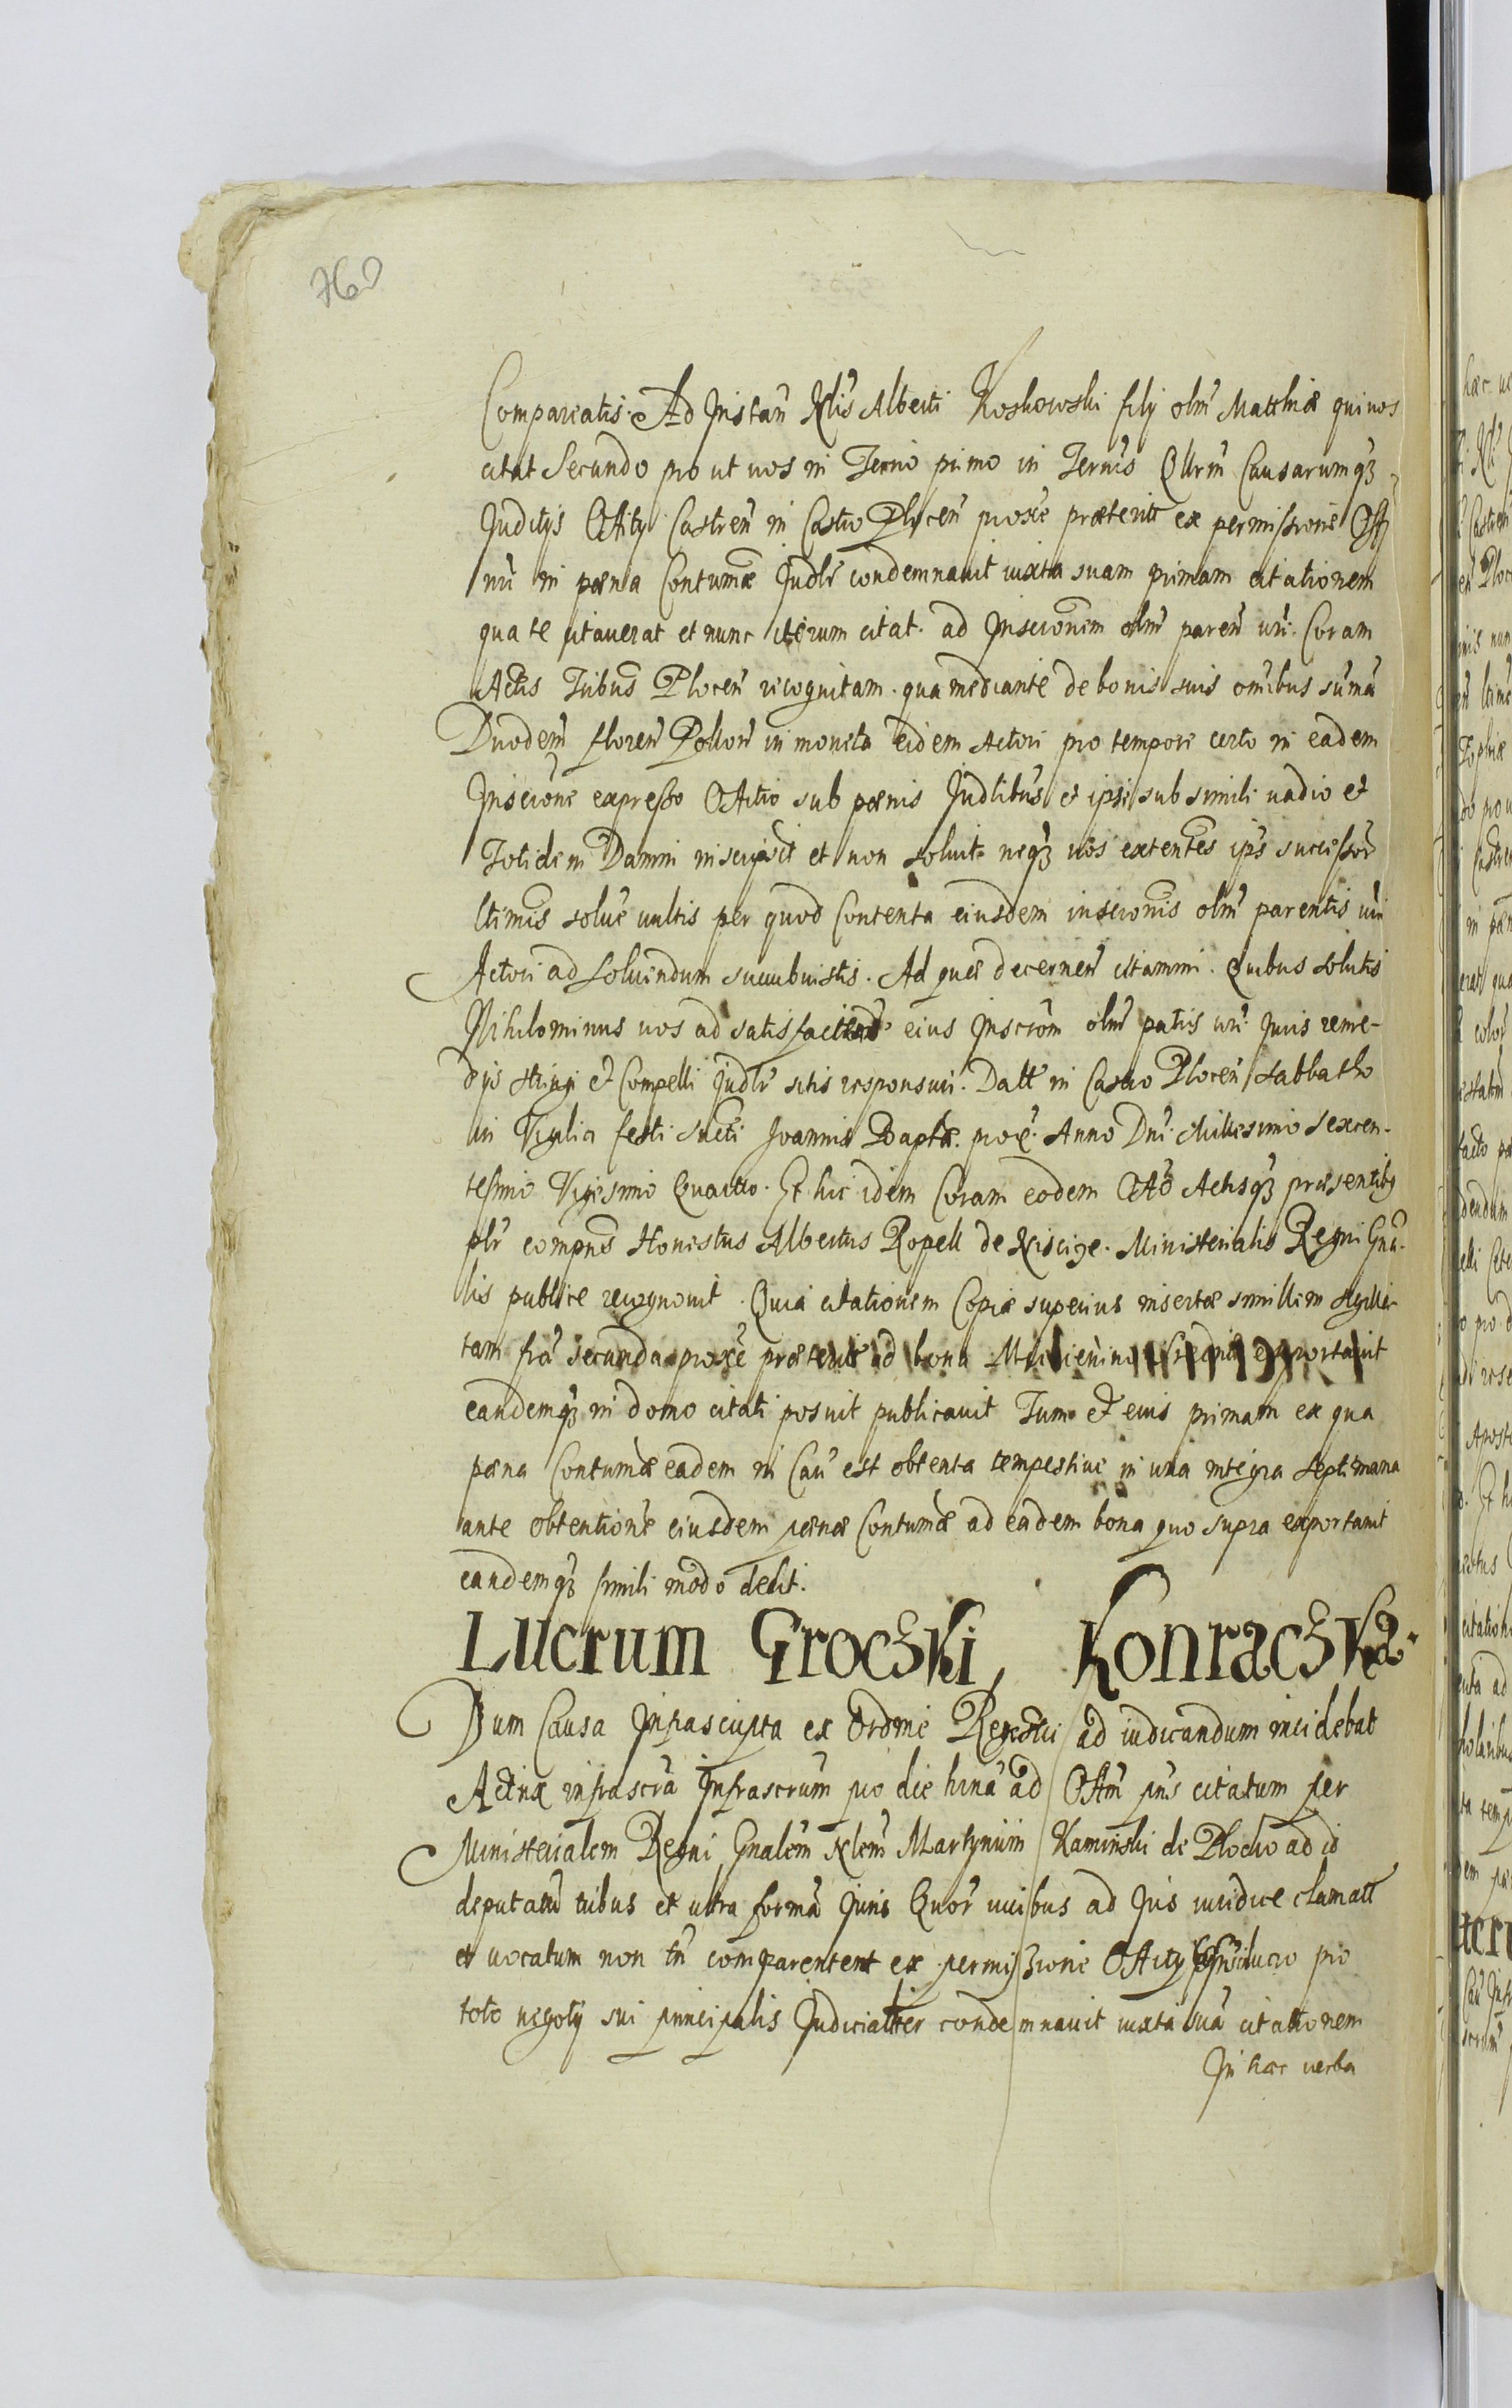 760
Compareatis. Ad Instan̄ Nlis Alberti Koskowski filij olm̄ Matthiæ qui uos
citat Secundo pro ut uos in Terno primo in Ternis Qllrm̄ Causarumqʒ
Juditys Offity Castren̄ in Castro Plocen̄ proxe præterit ex permissione Offi
nū in pæna Contumæ Judlr̄ condemnauit iuxta suam primam citationem
qua te citauerat et nunc iterum citat. ad Inscrōnem olm̄ paren̄ vr̄i. Coram
Actis Tribus Plocen̄ recognitam. qua mediante de bonis suis omībus sum̄a
Duodem̄ floren̄ Pollon̄ in moneta eidem Actori pro tempore certo in eadem
Inscrōne expresso Offitio sub pænis Judlibus et ipsi sub simili uadio et
Totidem Damni inscripsit et non soluit. neqʒ uos extentes ips̄ successor̄
ltimis solue uultis per quod Contenta eiusdem inscrōnis olm̄ parentis vr̄i
Actori ad soluendum succubuistis. Ad quæ decernen̄ citammi. Quibus solutis
Nihilominus uos ad satisfaciend̄ eius Inscrōm olm̄ patis vr̄i. Juris reme-
dijs stringi et Compelli Judlr̄ sitis responsuri. Datt in Castro Plocen̄ Sabbatho
in Vigilia festi Sncti Joannis Baptæ. prox̄. Anno Dnī. Millesimo Sexcen-
tesimo Vigesimo Quarto. Et hic idem Coram eodem Offo Actisqʒ præsentibʒ
plr̄ compns̄ Honestus Albertus Ropell de Niscige. Ministerialis Regni Gnā-
lis publice recognouit. Quia citationem Copiæ superius insertæ simillem sigilla-
tam fra secunda proxe præterit ad bona exportauit
eandemqʒ in domo citati posuit publicauit Tum et eius primam ex qua
pæna Contumæ eadem in Cau est obtenta tempestiue in una integra septimana
ante obtentione eiusdem pænæ Contumæ ad eadem bona quo supra exportauit
eandemqʒ simili modo dedit.
Lucrum Grochski, Konrachska.
Dum Causa Infrascripta ex Ordine Regestri ad iudicandum incidebat
Actrix infrascrā Infrascrum̄ pro die hrnā ad Offm̄ pns̄ citatum per
Ministerialem Regni Gnalem̄ Nlem̄ Martynum Kaminski de Plocko ad id
deputatu tribus et ultra formā Juris Quor̄ uicibus ad Jus iuridice clamatt
et uocatum non tn̄ comparentem ex permissione Offity lucro pro
toto negoty sui principalis Judicialiter condemnauit iuxta suā citationem
In hæc uerba